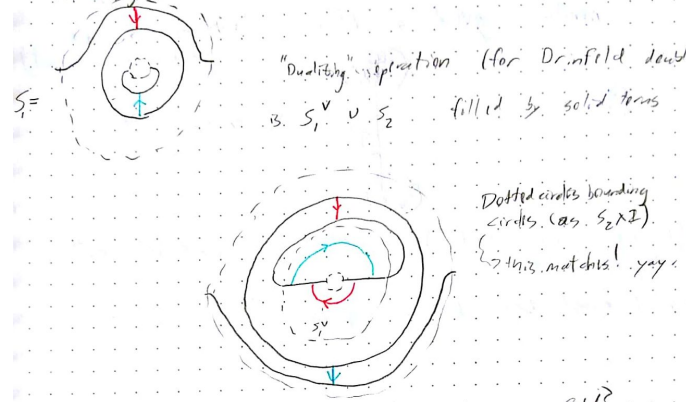 S₁ =
"Dualizing" operation (for Drinfeld doubl
is S₁^v ∪ S₂ filled by solid torus
Dotted circles bounding
circles (as S₂×I).
↳ this matches! yay.
S₁^v